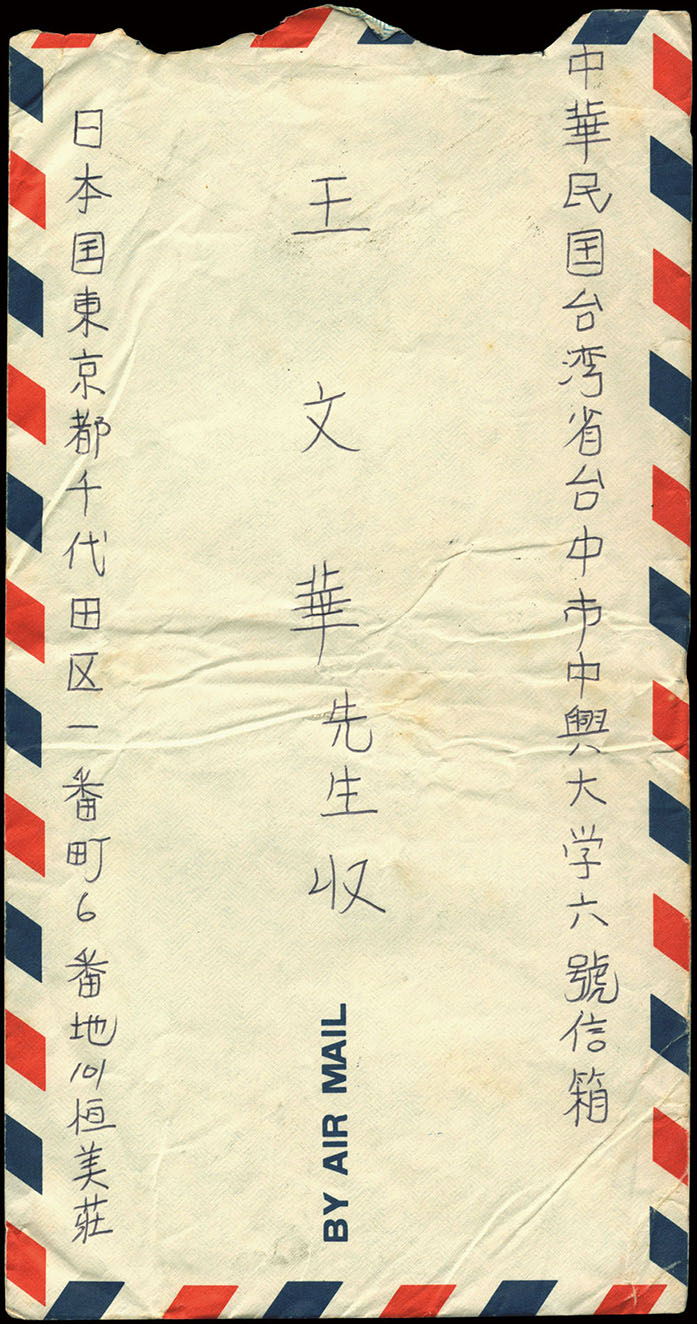 中華民国台湾省台中市中興大学六號信箱
王文華先生収
BY AIR MAIL
日本国東京都千代田区一番町6番地101恒美莊